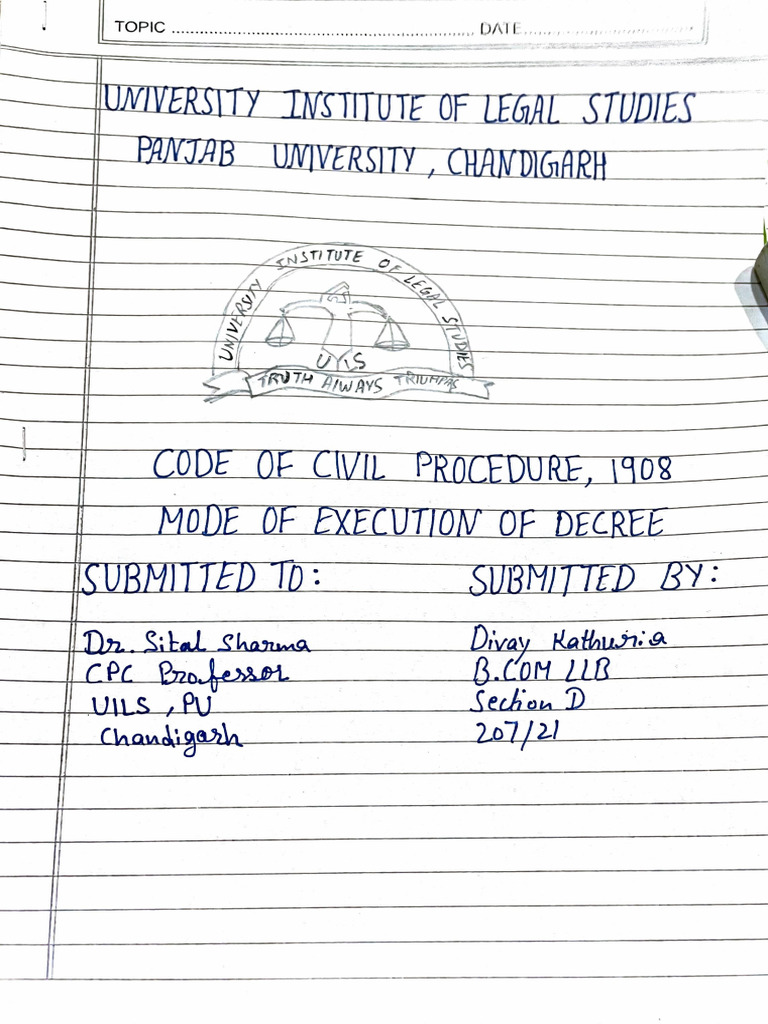 TOPIC ........................ DATE........................
UNIVERSITY INSTITUTE OF LEGAL STUDIES
PANJAB UNIVERSITY, CHANDIGARH
UNIVERSITY INSTITUTE OF LEGAL STUDIES
UILS
TRUTH AlWAYS TRIUMPHS
CODE OF CIVIL PROCEDURE, 1908
MODE OF EXECUTION OF DECREE
SUBMITTED TO: SUBMITTED BY:
Dr. Sital Sharma Divay Kathuria
CPC Professor B.COM LLB
UILS, PU Section D
Chandigarh 207/21